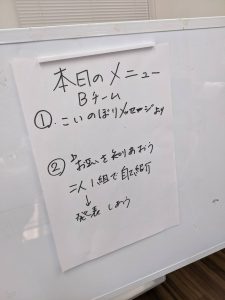 本日のメニュー
Bチーム
① こいのぼりメッセージより
② お互いを知りあおう
二人1組で自己紹介
↓
発表しあう